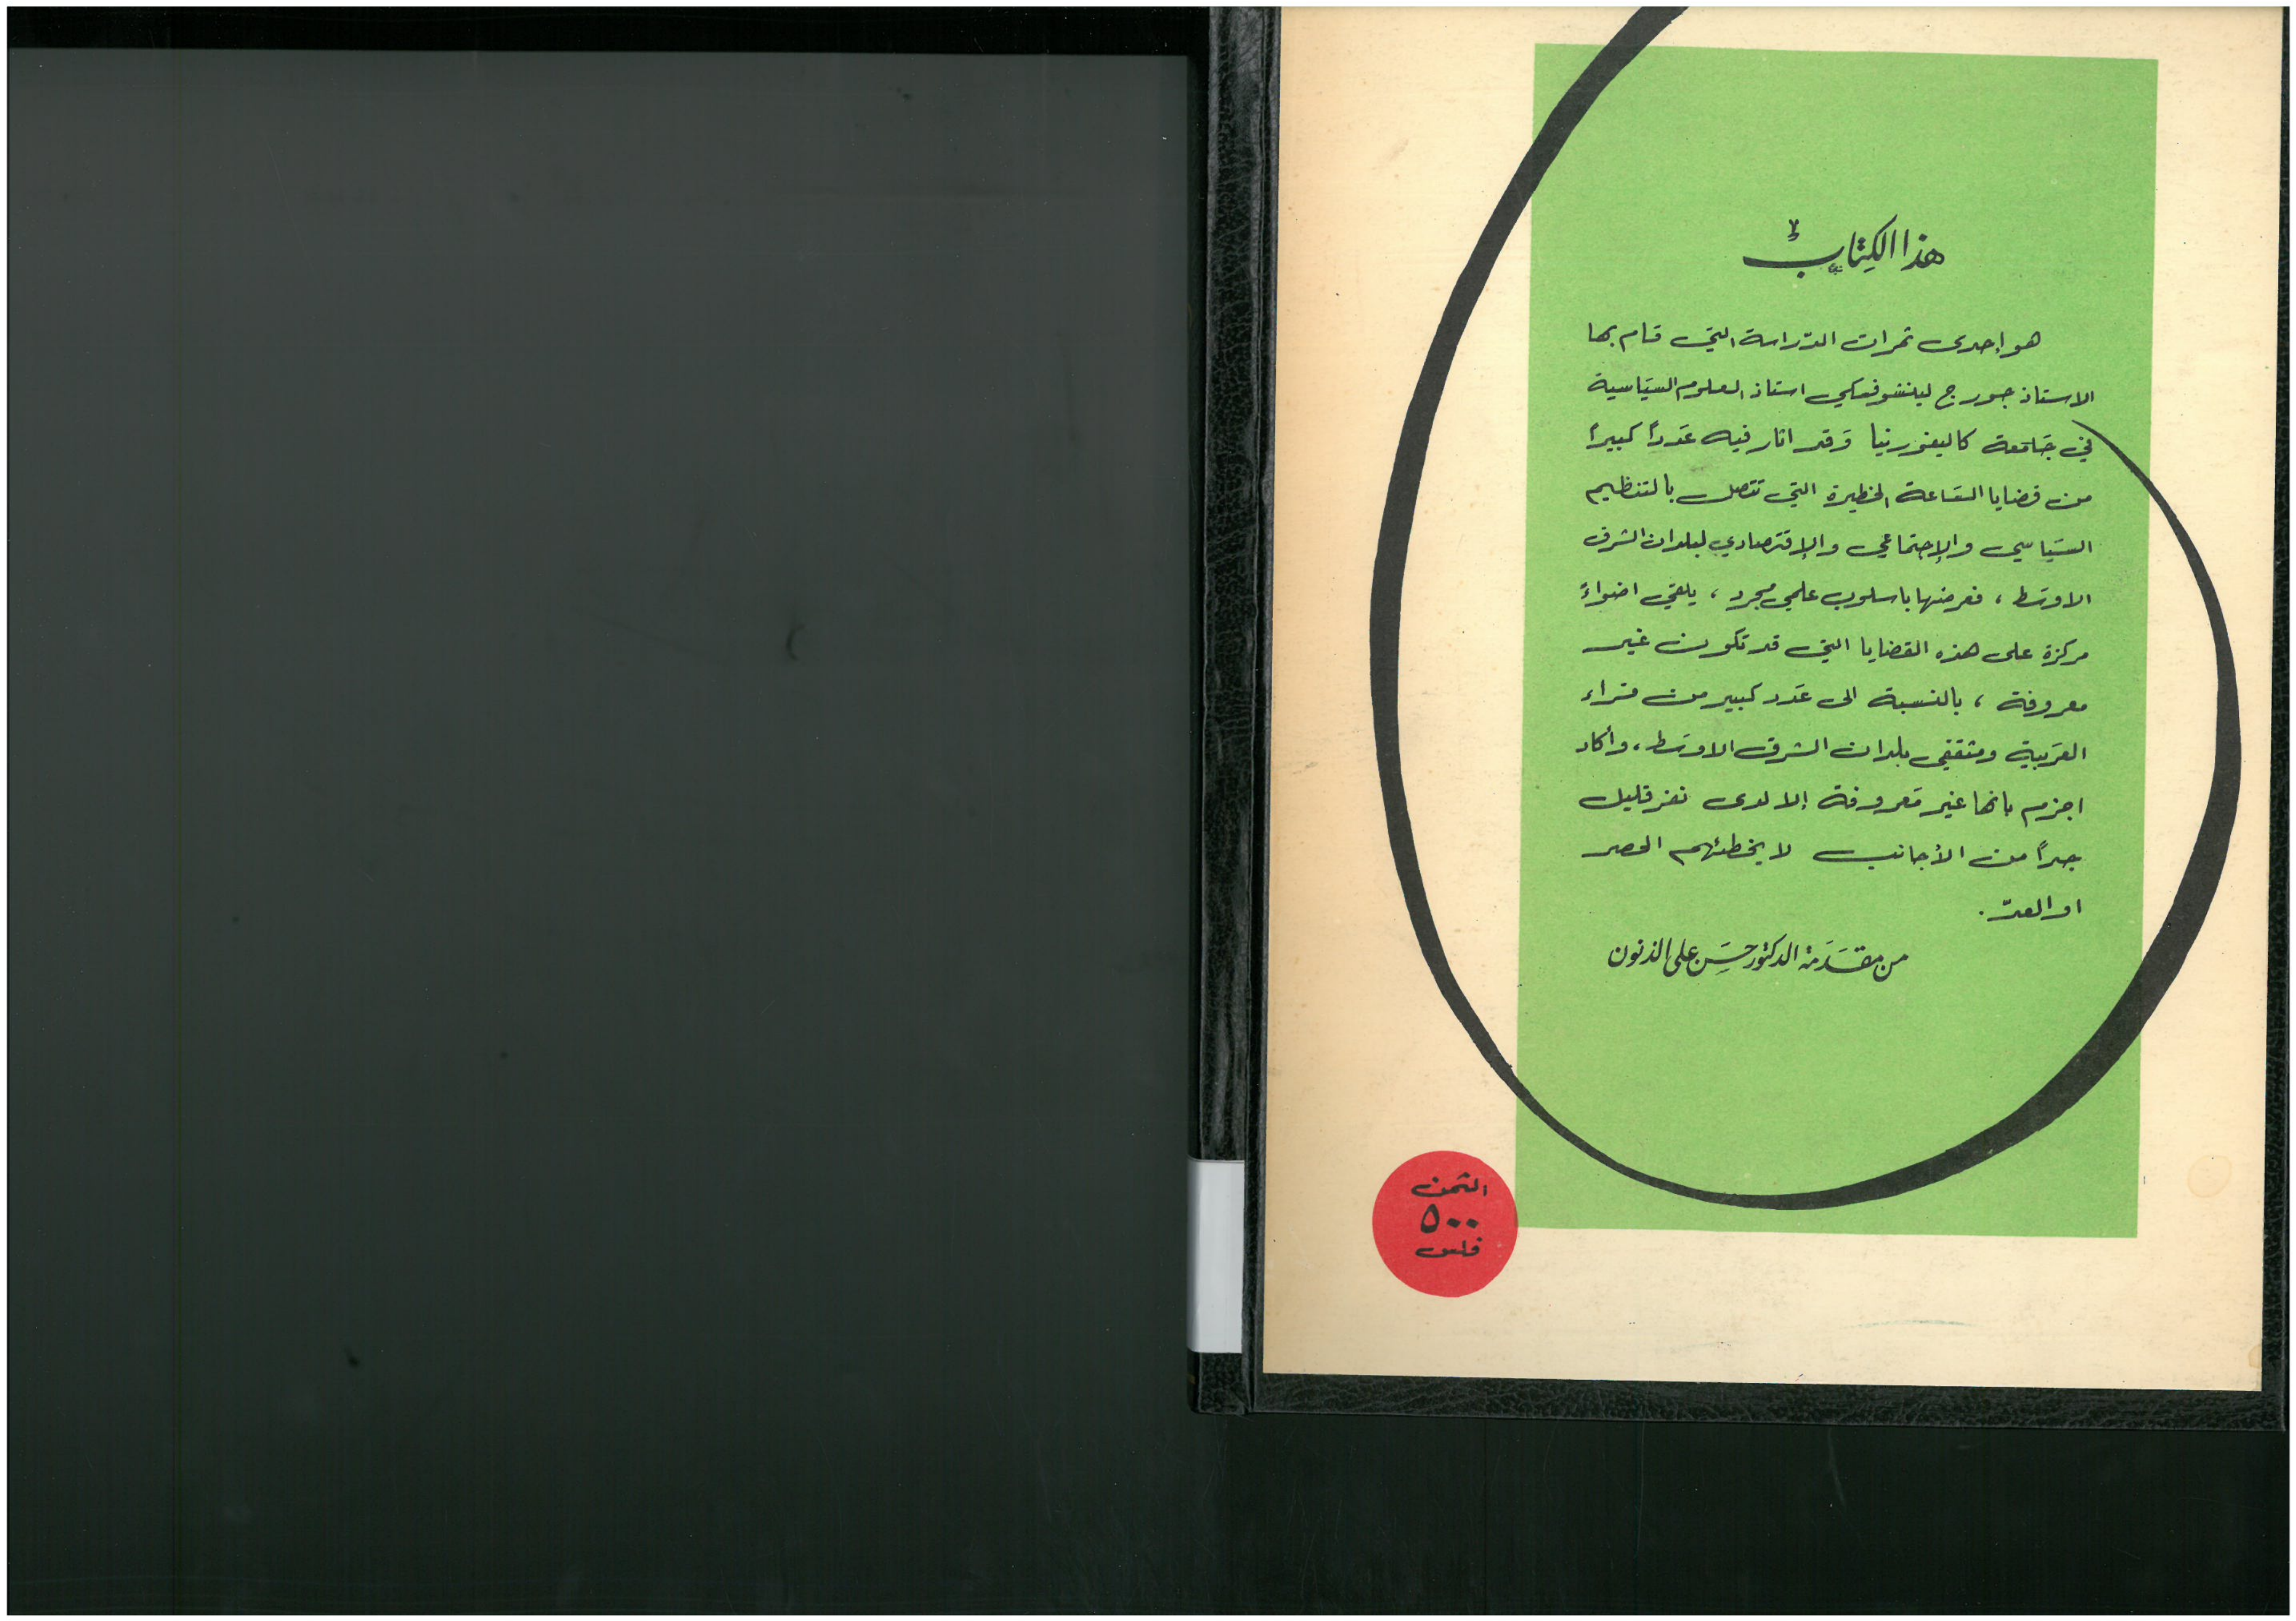 هذا الكِتابُ
هو إحدى ثمرات الدّراسة التي قام بها
الاستاذ جورج لينشوفسكي استاذ العلوم السيَاسية
في جَامَعة كاليفورنيا وَقد اثار فيه عَدداً كبيراً
من قضايا السَاعة الخطيرة التي تتصل بالتنظيم
السيَاسي والإجتماعي والإقتصادي لبلدان الشرق
الاوسَط ، فعرضها باسلوب علمي مجرد ، يلقي اضواءً
مركزة على هذه القضايا التي قد تكون غير
معروفة ، بالنسبة الى عَدد كبير من قراء
العرَبية ومثقفي بلدان الشرق الاوسَط ، وأكاد
اجزم بانها غير مَعروفة إلا لدى نفر قليل
جداً من الأجانب لا يخطئهم الحصر
او العدّ .
من مقدَمَة الدكتور حسَن على الذنون
الثمن
٥٠٠
فلس